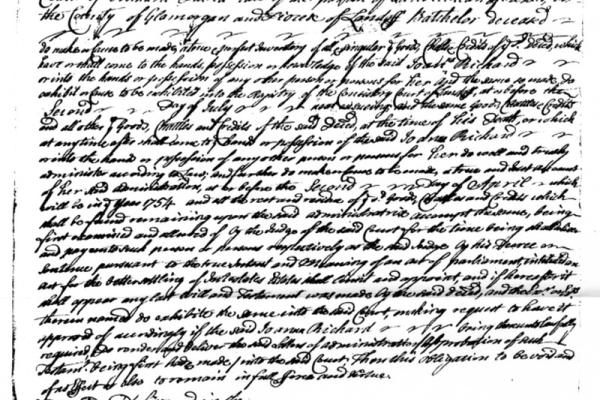 the County of Glamorgan and Dioces of Landaff Batchelor deceas'd
do make or cause to be made, a true & perfect Inventory of all & singular ye Goods, Chattles & Credits of ye sd Deced, which
have or shall come to the hands, possession or knowledge of the said Joan Richard
or into the hands or possession of any other person or persons for her And the same so made do
exhibit or cause to be exhibited into the Registry of the Consistory Court of Landaff, at or before the
Second Day of July next ensuing and the same Goods, Chattles & Credits
and all other ye Goods, Chattles and Credits of the said Deced, at the time of his Death, or which
at any time after shall come to ye hand or possession of the said Joan Richard
or into the hands or possession of any other person or persons for her do well and truely
administer according to Law; and further do make or cause to be made, a true and Just account
of her said administration, at or before the Second Day of April which
will be in ye Year 1754 and all the rest and residue of ye sd Goods, Chattles and Credits which
shall be found remaining upon the said administratrix accompt the same, being
first examined and allowed of by the Judge of the said Court for the time being shall deliver
and pay unto such person or persons respectively as the said Judge by his Decree or
Sentence pursuant to the true Intent and Meaning of an act of parliament, intituled an
act for the better settling of Intestates Estates shall limit and appoint, and if hereafter it
shall appear any last Will and Testament was made by the said Deced, and the Exr or Exrs
therein named do exhibite the same into the said Court, making request to have it
approved of accordingly if the said Joan Richard being thereunto lawfully
required, do render and deliver the said Letters of administration (approbation of such
Testamt being first had & made) into the said Court, Then this obligation to be void and
of no Effect or else to remain in full force and virtue.